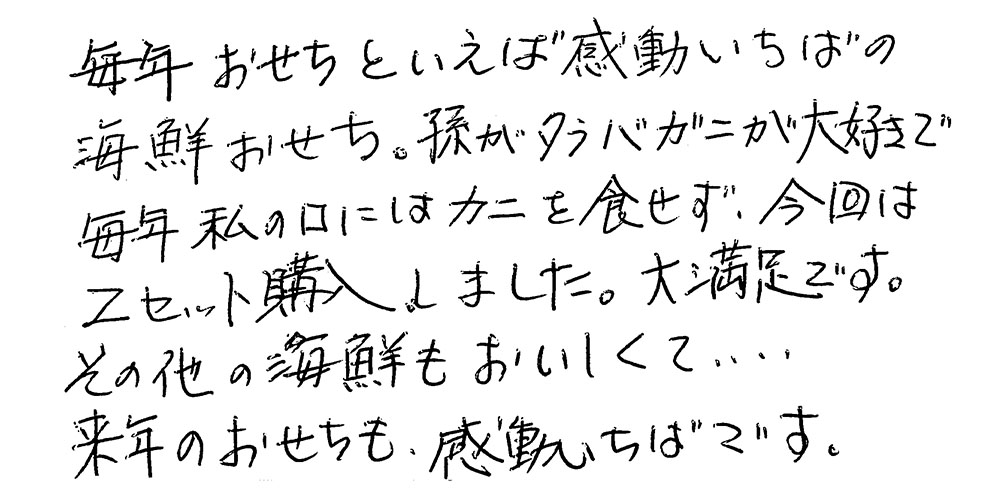 毎年おせちといえば感動いちばの
海鮮おせち。孫がタラバガニが大好きで
毎年私の口にはカニを食せず、今回は
2セット購入しました。大満足です。
その他の海鮮もおいしくて‥‥
来年のおせちも、感動いちばです。